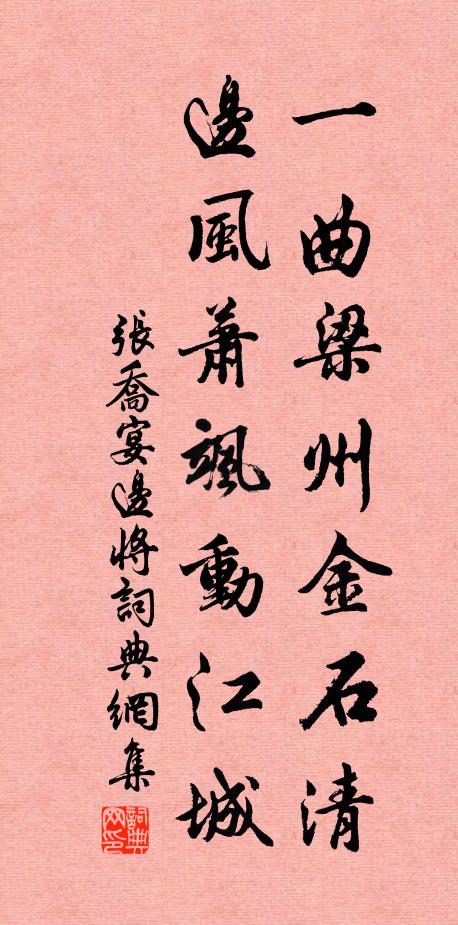 一曲梁州金石清
邊風蕭颯動江城
張喬宴邊將詞典網集
詞典网印